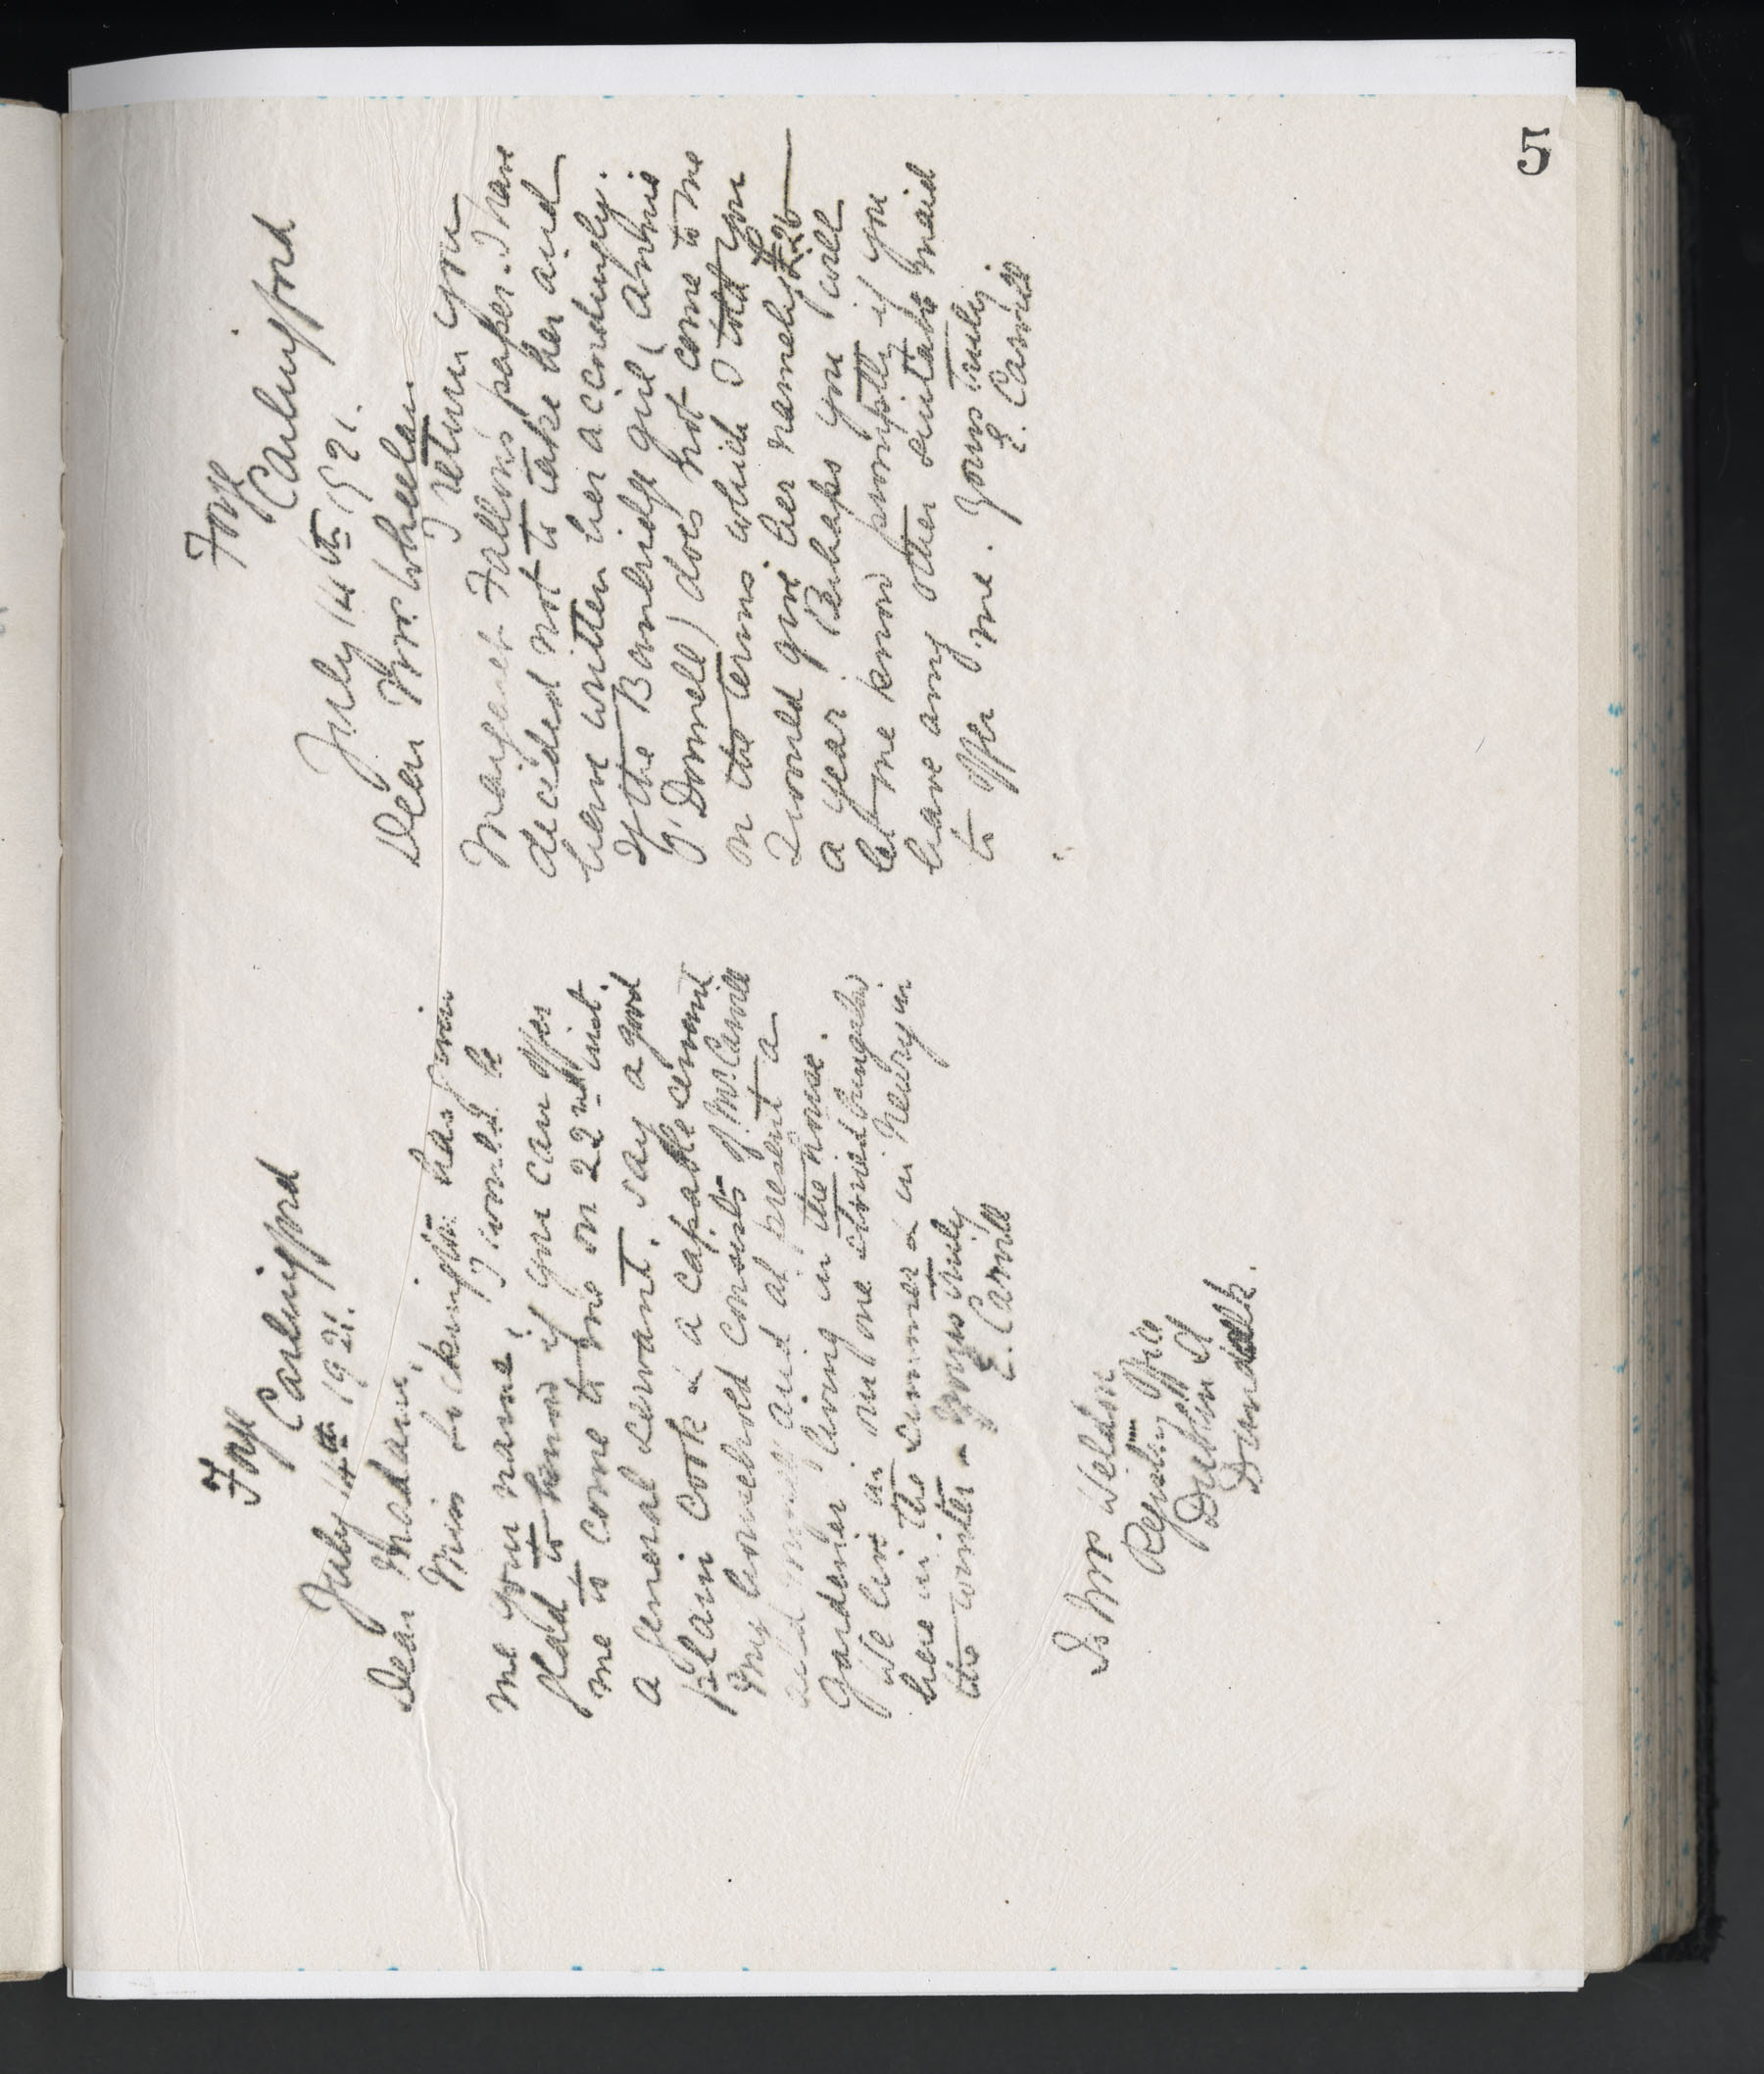 5
Foyle
Carlingford
July 14th 1921.
Dear Madam,
Miss has given
me your name. I would be
glad to know if you can offer
me to come to me on 22nd inst.
a general servant. Say a good
plain cook & a capable servant
My household consists of Mr. Carvill
and myself and at present a
Gardener living in the house.
We live in our one storied bungalow
here in the summer & in Newry in
the winter - Yours truly
E. Carvill
To Mrs Weldon
Registry Office
Dublin St
Dundalk.
Foyle
Carlingford
July 14th 1921.
Dear Mrs. Wheelan
I return you
Margaret Fallon's paper. I have
decided not to take her and
have written her accordingly.
If the Banbridge girl (Annie
O'Donnell) does not come to me
on the terms which I told you
I would give her namely £26
a year. Perhaps you will
let me know promptly if you
have any other suitable maid
to offer me. Yours truly
E. Carvill